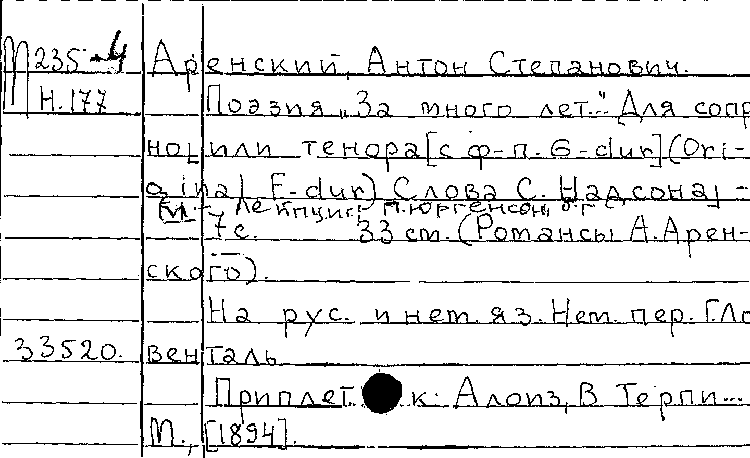 М235-4 Аренский, Антон Степанович.
Н.177 Поэзия „За много лет..." Для сопр
но или тенора [с ф-п. G-dur] (Ori-
ginal F-dur) Слова С. Надсона] -
[М. - Лейпциг П. Юргенсон, б.г.
7с. 33 ст. (Романсы А. Арен-
ского).
На рус. и нем. яз. Нем. пер. Г. Ло
33520. венталь
Приплет. к: Алоиз, В Терпи...
М., [1894].